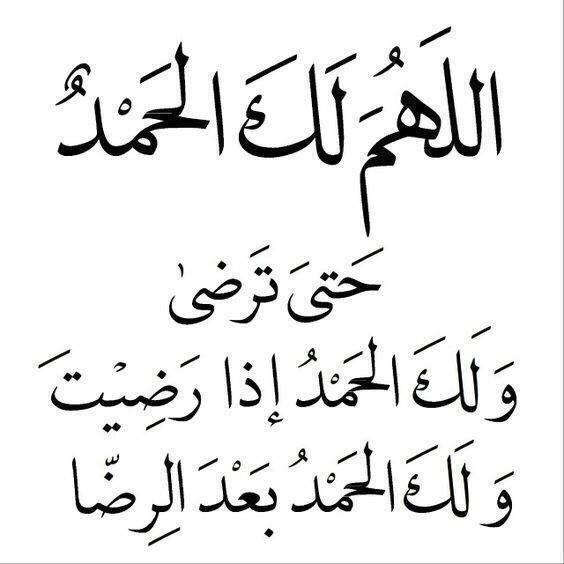 اللَهُمَ لَكَ الحَمْدُ
حَتىَ تَرَضىٰ
وَلَكَ الحَمْدُ إذا رَضِيْتَ
وَلَكَ الحَمْدُ بَعْدَ الرِضّا